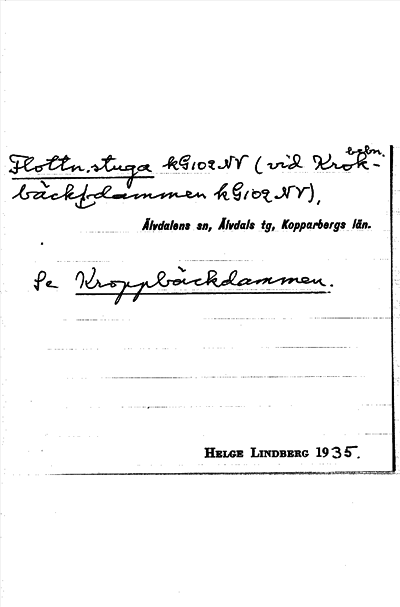 Flottn.stuga kG102NV (vid Krok-
bäck-dammen kG102NV),
Älvdalens sn, Älvdals tg, Kopparbergs län.
Se Kroppbäckdammen.
HELGE LINDBERG 1935.